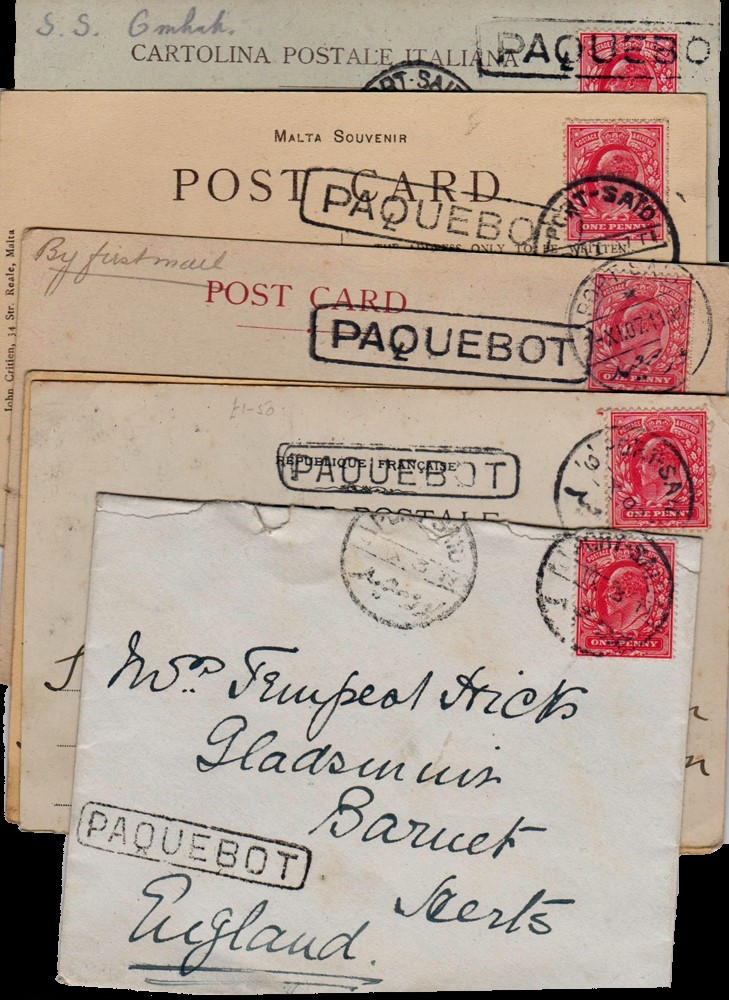 S. S. Omrah.
CARTOLINA POSTALE ITALIANA
PAQUEBO
PORT-SAID
POSTAGE & REVENUE
MALTA SOUVENIR
POST CARD
PAQUEBO
PORT-SAID
POSTAGE & REVENUE
ONE PENNY
THE ADDRESS ONLY TO BE WRITTEN
John Critien, 34 Str. Reale, Malta
By first mail
POST CARD
PAQUEBOT
PORT-SAID
ONE PENNY
£1-50
RÉPUBLIQUE FRANÇAISE
PAQUEBOT
POSTALE
PORT-SAI
ONE PENNY
PORT SAID
PORT-SAID
ONE PENNY
Mrs Tempest Hicks
Gladsmuir
Barnet
Herts
England.
PAQUEBOT